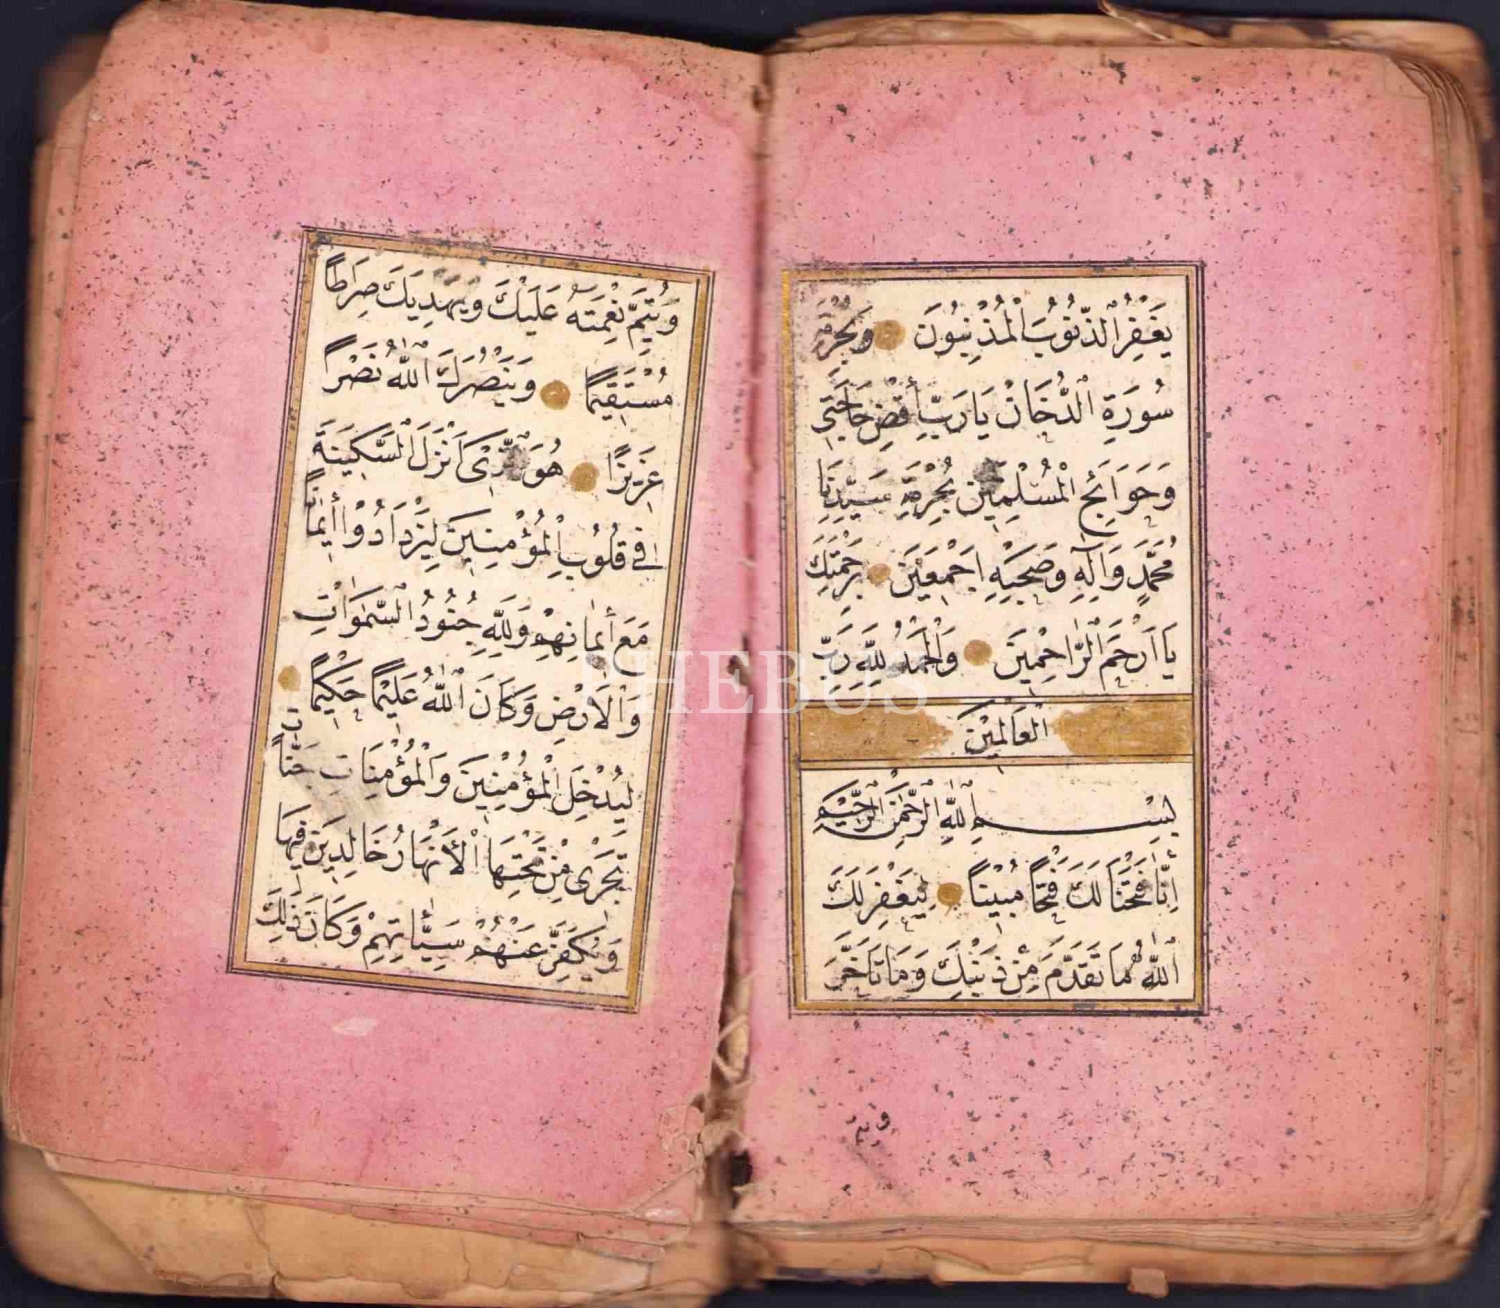 يَغْفِرُ الذُّنُوبَ الْمُذْنِبُونَ وَبِحُرْمَةِ
سُورَةِ الدُّخَانْ يَارَبِّ أَقْضِ حَاجَتِى
وَحَوَائِجَ الْمُسْلِمِينَ بِحُرْمَةِ سَيِّدِنَا
مُحَمَّدٍ وَآلِهِ وَصَحْبِهِ اَجْمَعِينَ بِرَحْمَتِكَ
يَا اَرْحَمَ الرَّاحِمِينَ وَالْحَمْدُ لِلَّهِ رَبِّ
الْعَالَمِينَ
بِسْمِ اللَّهِ الرَّحْمٰنِ الرَّحِيمِ
اِنَّا فَتَحْنَا لَكَ فَتْحًا مُبِينًا لِيَغْفِرَ لَكَ
اللَّهُ مَا تَقَدَّمَ مِنْ ذَنْبِكَ وَمَا تَاَخَّرَ
وَيُتِمَّ نِعْمَتَهُ عَلَيْكَ وَيَهْدِيَكَ صِرَاطًا
مُسْتَقِيمًا وَيَنْصُرَكَ اللَّهُ نَصْرًا
عَزِيزًا هُوَ الَّذِى اَنْزَلَ السَّكِينَةَ
فِى قُلُوبِ الْمُؤْمِنِينَ لِيَزْدَادُوا أِيمَانًا
مَعَ أِيمَانِهِمْ وَلِلَّهِ جُنُودُ السَّمٰوَاتِ
وَالْاَرْضِ وَكَانَ اللَّهُ عَلِيمًا حَكِيمًا
لِيُدْخِلَ الْمُؤْمِنِينَ وَالْمُؤْمِنَاتِ جَنَّاتٍ
تَجْرِى مِنْ تَحْتِهَا الْأَنْهَارُ خَالِدِينَ فِيهَا
وَيُكَفِّرَ عَنْهُمْ سَيِّئَاتِهِمْ وَكَانَ ذٰلِكَ
PHEBUS